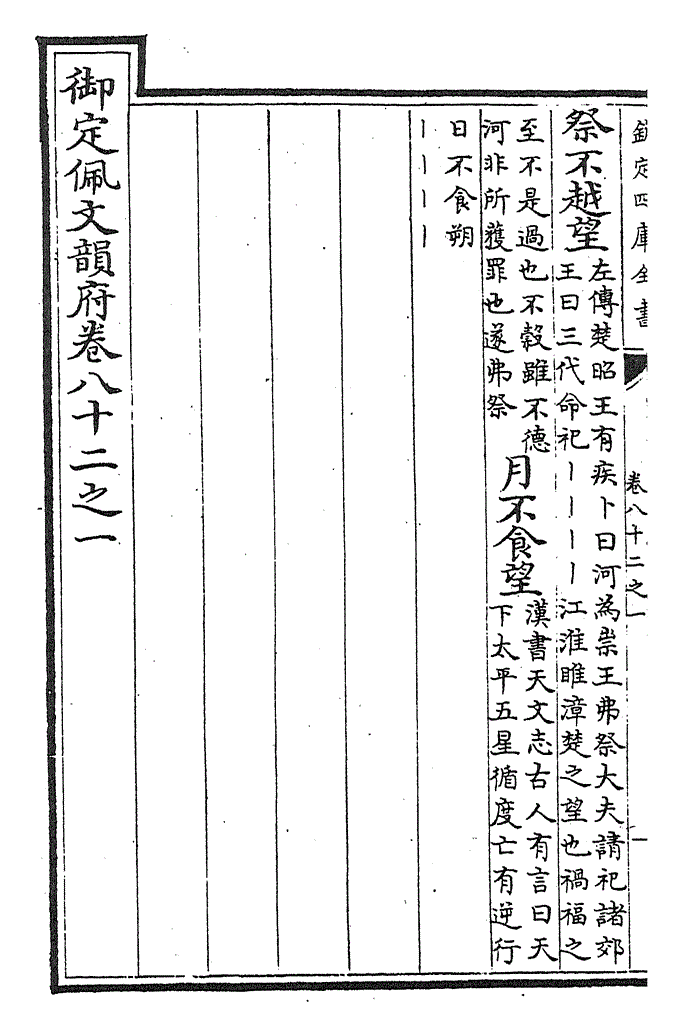 欽定四庫全書
卷八十二之一
祭不越望
左傳楚昭王有疾卜曰河為祟王弗祭大夫請祀諸郊
王曰三代命祀丨丨丨丨江淮睢漳楚之望也禍福之
至不是過也不穀雖不德
河非所獲罪也遂弗祭
月不食望
漢書天文志古人有言曰天
下太平五星循度亡有逆行
日不食朔
丨丨丨丨
御定佩文韻府卷八十二之一